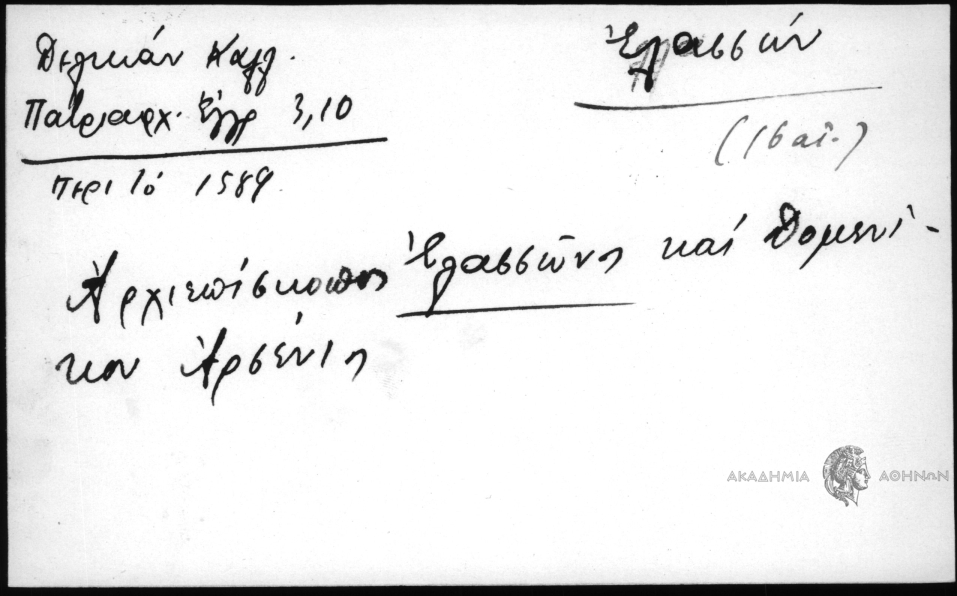 Δελικάν Καλλ.
Πατριαρχ. Έγγρ 3,10
περί τό 1589
Ἐλασσών
(16 αἰ.)
Ἀρχιεπίσκοπος Ἐλασσῶνος καί Δομενί-
κου Ἀρσένιος
ΑΚΑΔΗΜΙΑ ΑΘΗΝΩΝ